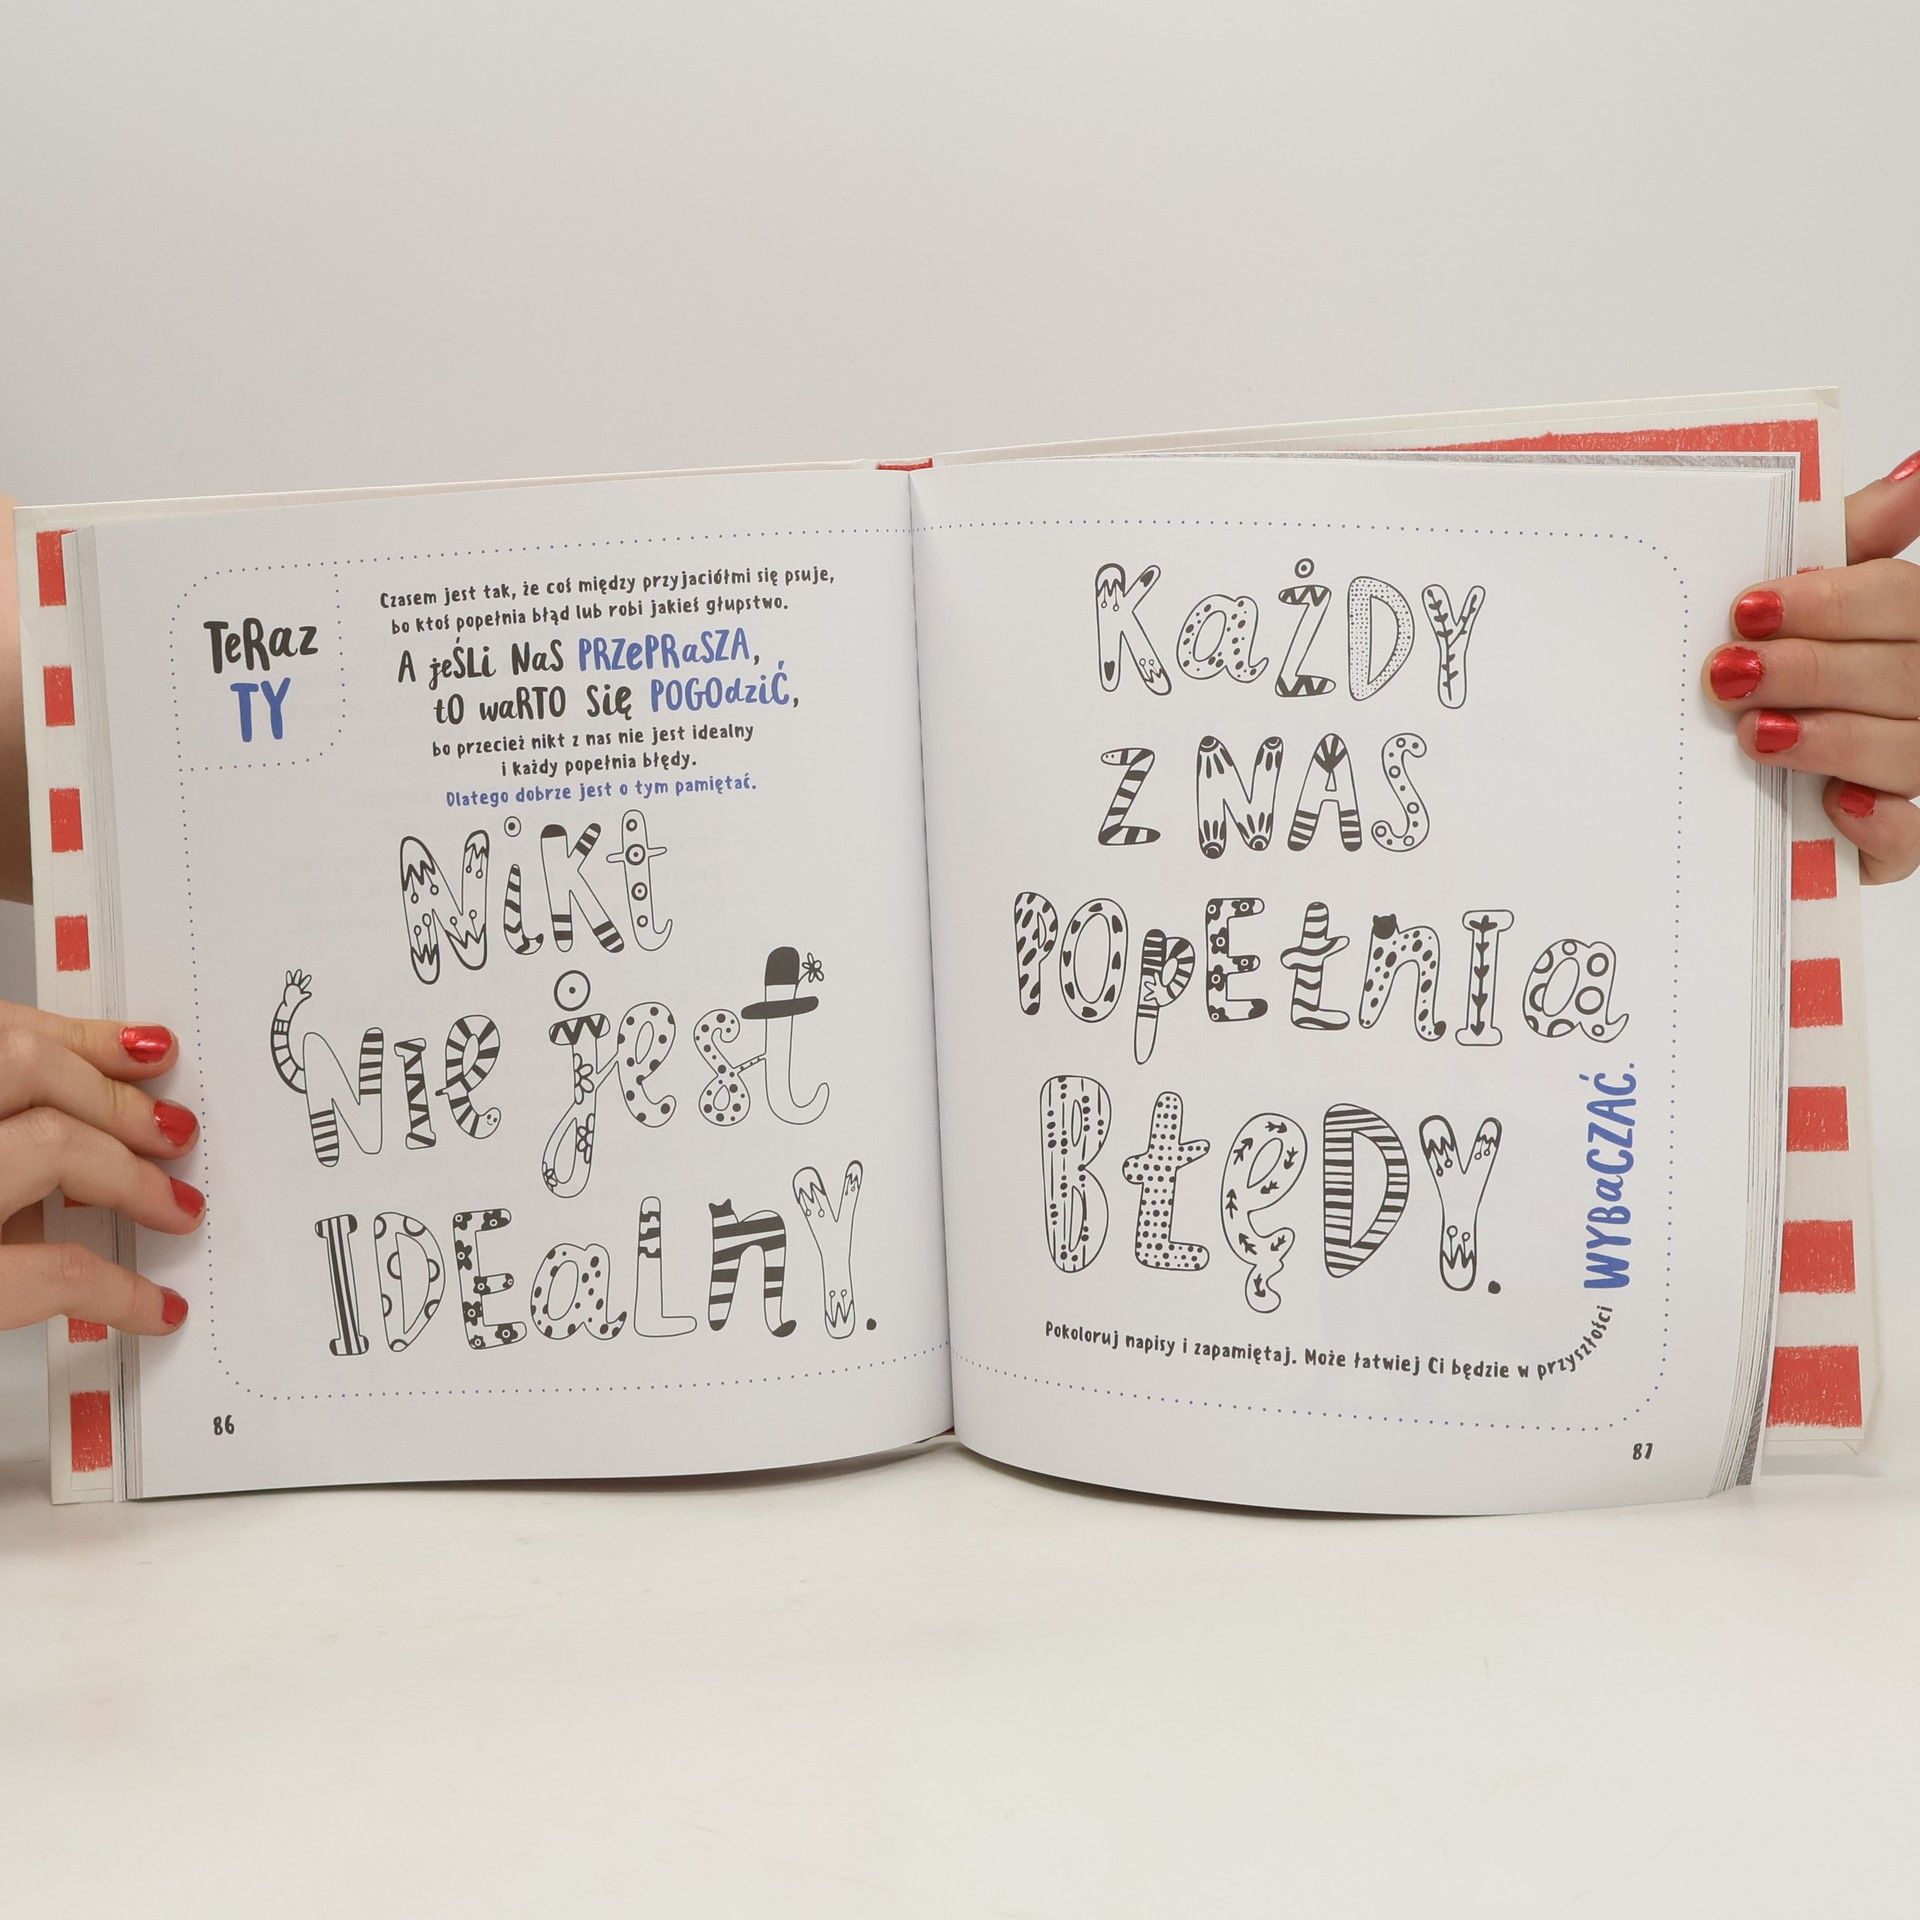 TeRaz
TY
Czasem jest tak, że coś między przyjaciółmi się psuje,
bo ktoś popełnia błąd lub robi jakieś głupstwo.
A jeŚLi NaS PRZePRaSZA,
tO waRTO Się POGOdziĆ,
bo przecież nikt z nas nie jest idealny
i każdy popełnia błędy.
Dlatego dobrze jest o tym pamiętać.
NiKt
NIe jest
IDEaLnY.
86
KaŻDY
Z NAS
POpEłnIa
BłęDY.
Pokoloruj napisy i zapamiętaj. Może łatwiej Ci będzie w przyszłości WYBaCZAĆ.
87